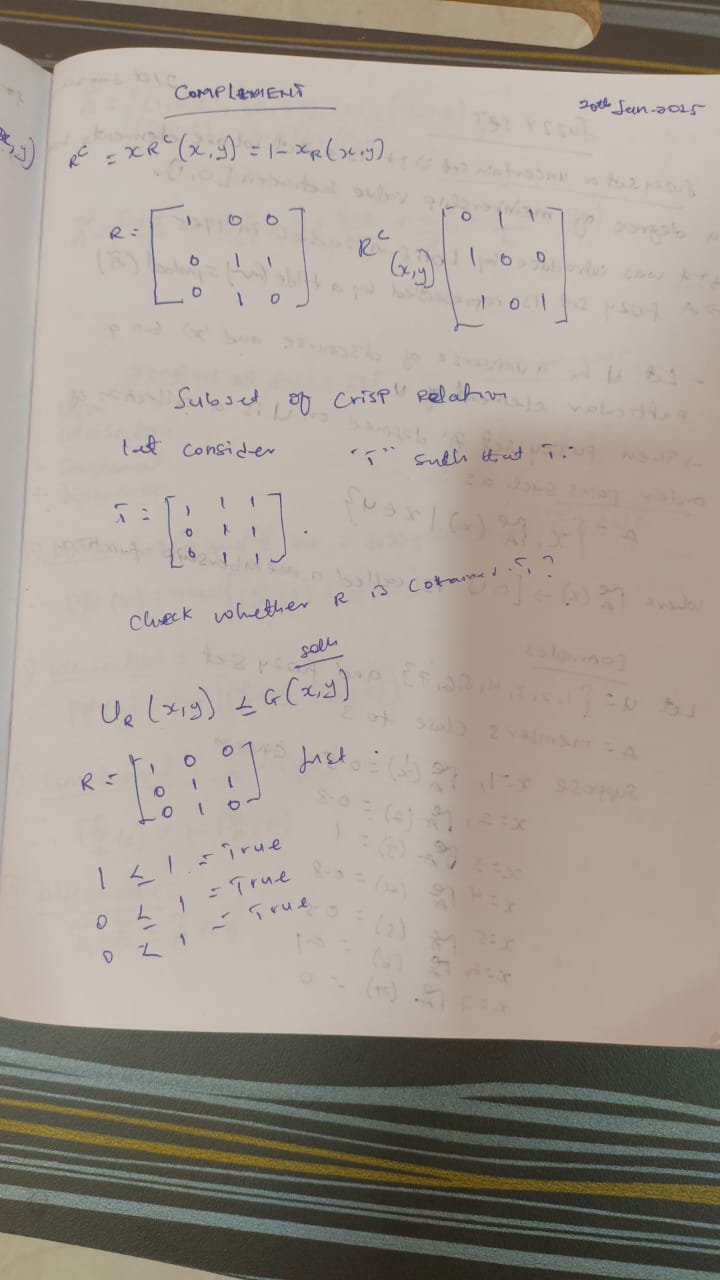 COMPLEMENT
20th Jan-2025
R^C = χR^C(x,y) = 1 - χ_R(x,y)
R = [1 0 0
0 1 1
0 1 0]
R^C (x,y) [0 1 1
1 0 0
1 0 1]
Subset of crisp Relation
let consider "T" such that T:
T = [1 1 1
0 1 1
0 1 1].
Check whether R is T?
soln
U_R (x,y) ≤ G(x,y)
R = [1 0 0
0 1 1
0 1 0]
1 ≤ 1 = True
0 ≤ 1 = True
0 ≤ 1 = True